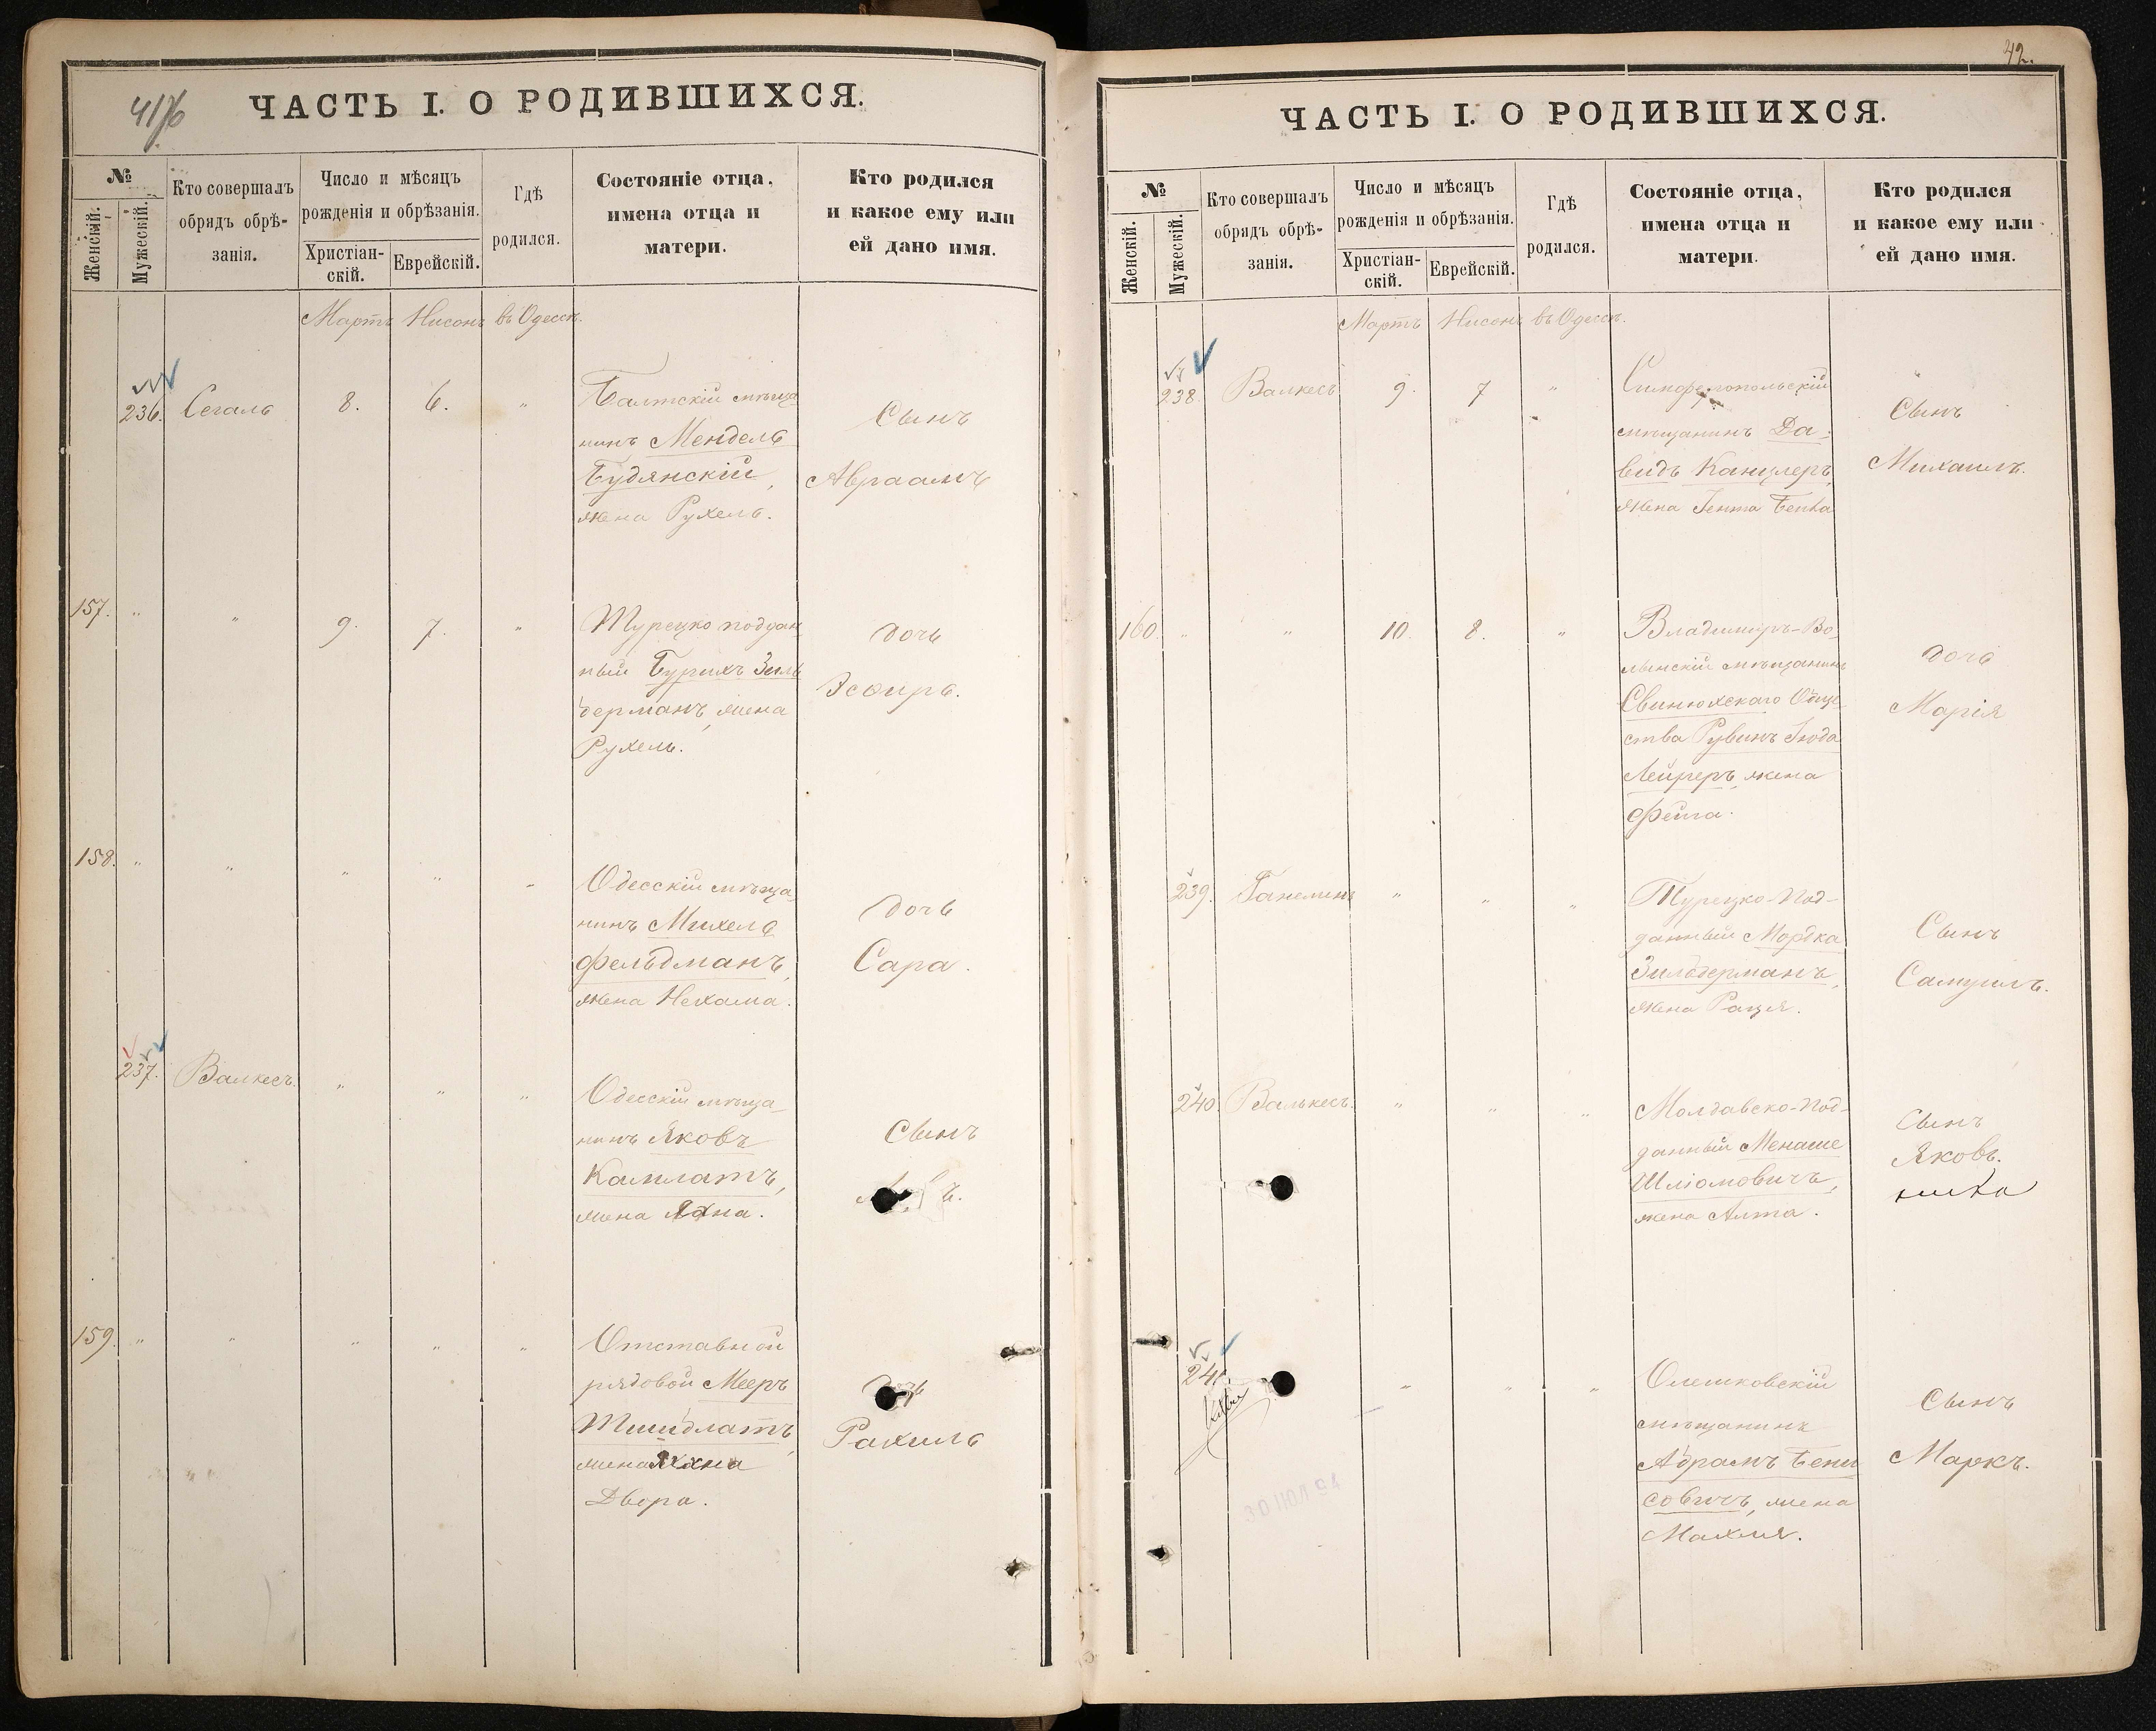 41/76
ЧАСТЬ I. О РОДИВШИХСЯ.
№
Женскій.
Мужескій.
Кто совершалъ
обрядъ обрѣ-
занія.
Число и мѣсяцъ
рожденія и обрѣзанія.
Христіан-
скій.
Еврейскій.
Гдѣ
родился.
Состояніе отца,
имена отца и
матери.
Кто родился
и какое ему или
ей дано имя.
Мартъ Нисонъ въ Одессѣ.
236. Сегаль 8. 6. "
Балтскій мѣща
нинъ Мендель
Будянскій,
жена Рухель.
Сынъ
Авраамъ
157. " " 9. 7. "
Турецко поддан
ный Бурихъ Зиль
дерманъ, жена
Рухель.
Дочь
Эсѳирь.
158. " " " " "
Одесскій мѣща
нинъ Михель
Фельдманъ,
жена Нехама.
Дочь
Сара.
237. Валкесъ. " " "
Одесскій мѣща
нинъ Яковъ
Камлатъ,
жена Яхна.
Сынъ
159. " " " " "
Отставной
рядовой Мееръ
жена Яхна
Двора.
Рахиль
42.
ЧАСТЬ I. О РОДИВШИХСЯ.
№
Женскій.
Мужескій.
Кто совершалъ
обрядъ обрѣ-
занія.
Число и мѣсяцъ
рожденія и обрѣзанія.
Христіан-
скій.
Еврейскій.
Гдѣ
родился.
Состояніе отца,
имена отца и
матери.
Кто родился
и какое ему или
ей дано имя.
Мартъ Нисонъ въ Одессѣ.
238. Валкесъ 9. 7 "
Симферопольскій
мѣщанинъ Да-
видъ Канцлеръ,
жена Гента Бейла
Сынъ
Михаилъ.
160. " " 10. 8. "
Владиміръ-Во-
лынскій мѣщанинъ
Свинюхскаго Обще-
ства Рувинъ Іюда
Лейреръ, жена
Фейга.
Дочь
Марія
239. " " "
Турецко-Под-
данный Мордка
Зильберманъ,
жена Рация.
Сынъ
Самуилъ.
240. Валькесъ. " " "
Молдавско-Под-
данный Менаше
Шліомовичъ,
жена Алта.
Сынъ
Яковъ.
241. " " "
Олешковскій
мѣщанинъ
Абрамъ Бени
совичъ, жена
Махля.
Сынъ
Маркъ.
30 ИЮЛ 94